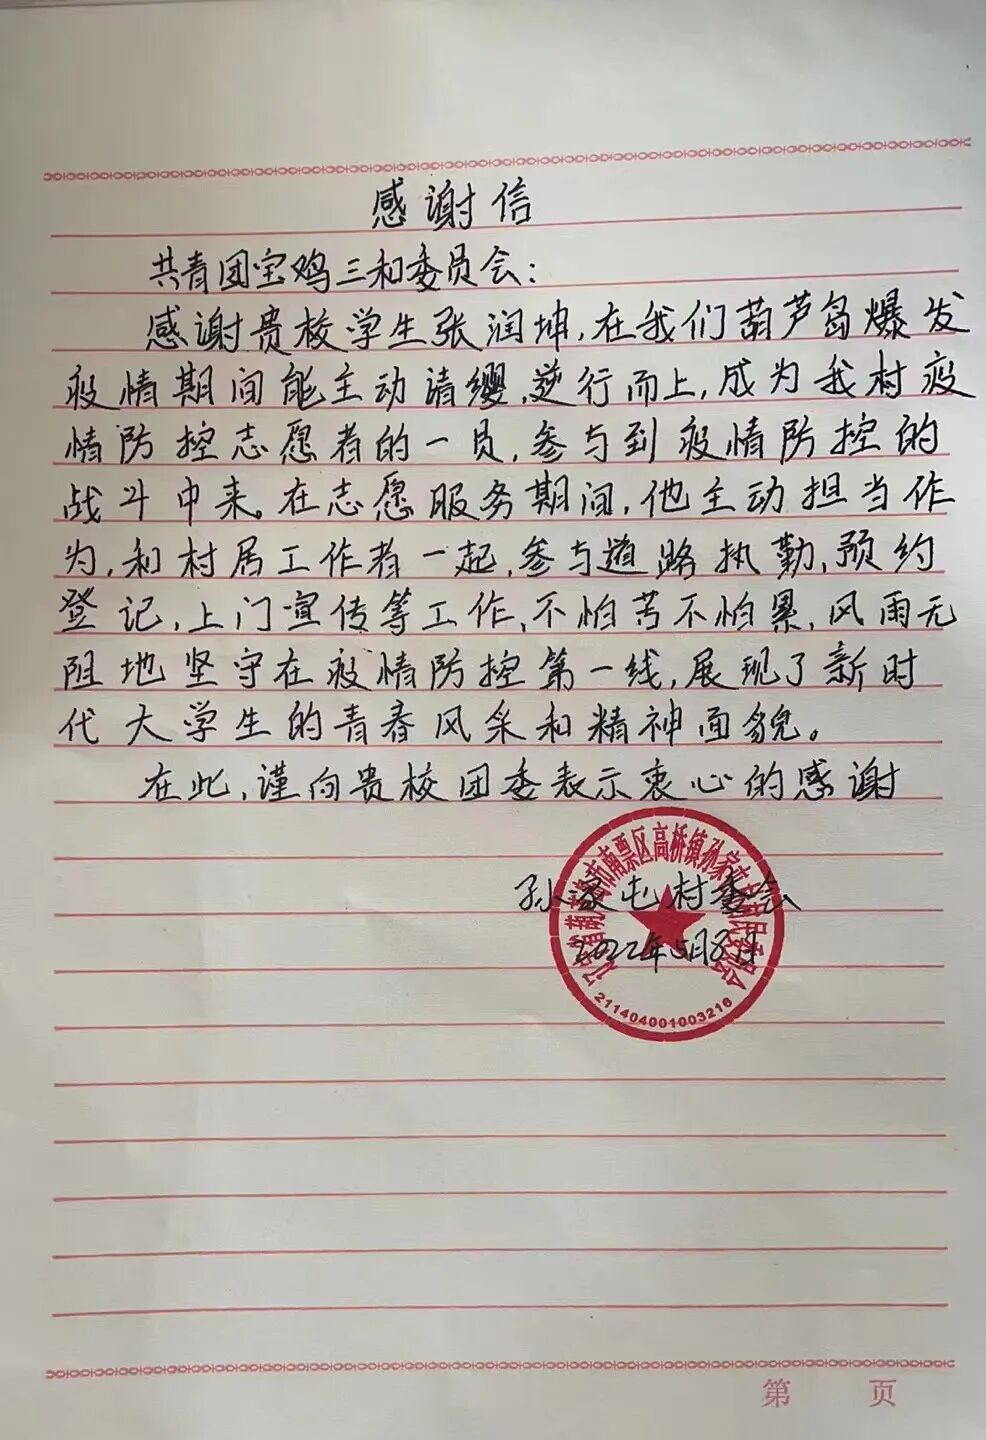 感谢信
共青团宝鸡三和委员会：
感谢贵校学生张润坤，在我们葫芦岛爆发
疫情期间能主动请缨，逆行而上，成为我村疫
情防控志愿者的一员，参与到疫情防控的
战斗中来。在志愿服务期间，他主动担当作
为，和村居工作者一起，参与道路执勤，预约
登记，上门宣传等工作，不怕苦不怕累，风雨无
阻地坚守在疫情防控第一线，展现了新时
代大学生的青春风采和精神面貌。
在此，谨向贵校团委表示衷心的感谢
孙家屯村委会
2022年5月8日
辽宁省葫芦岛市南票区高桥镇孙家屯村村民委员会
211404001003216
第 页